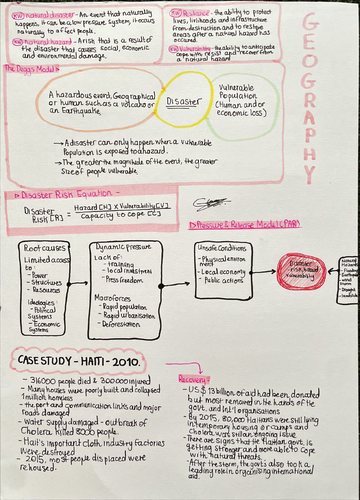 KW natural disaster - An event that naturally
happens, it can be a low pressure system, it occurs
naturally to affect people.
KW natural hazard - A risk that is a result of
the disaster that causes social, economic
and environmental damage.
KW Resilience - the ability to protect
lives, livelihoods and infrastructure
from destruction and to restore
areas after a natural hazard has
occured.
KW Vulnerability - the ability to anticipate
cope with resist and recover from
a natural hazard
GEOGRAPHY
The Deggs Model
A hazardous event, Geographical
or human such as a volcano or
an Earthquake.
Disaster
Vulnerable
Population
(Human and/or
economic loss)
→ A disaster can only happen when a vulnerable
Population is exposed to a hazard.
→ The greater the magnitude of the event, the greater
size of people vulnerable.
Disaster Risk Equation -
Disaster Risk [R] = Hazard [H] x Vulnerability [V]
Capacity to cope [C]
Pressure & Release Model (PAR)
Root causes
Limited access
to:
- Power
- Structures
- Resources
Ideologies:
- Political
Systems
- Economic
Systems
Dynamic pressure
Lack of:
- training
- local industries
- Press freedom
Macroforces
- Rapid population
- Rapid urbanisation
- Deforestation
Unsafe Conditions
- Physical environ
ment
- Local economy
- Public actions
Disaster
risk, hazard
vulnerability
CASE STUDY - HAITI - 2010
- 316000 people died & 300000 injured
- Many houses were poorly built and collapsed
1 million homeless
- the port and communication links and major
roads damaged
- Water supply damaged - outbreak of
Cholera killed 8000 people.
- Haiti's important cloth industry factories
were destroyed
- 2015, most people displaced were
rehoused.
Recovery
- US $13 billion of aid had been donated
but most remained in the hands of the
govt. and Int'l organisations
- By 2015, 80000 Haitians were still living
in temporary housing or camps and
Cholera was still an ongoing issue
- There are signs that the Haitian govt. is
getting stronger and more able to cope
with natural threats.
- After the storm, the govt. also took a
leading role in organizing international
aid.